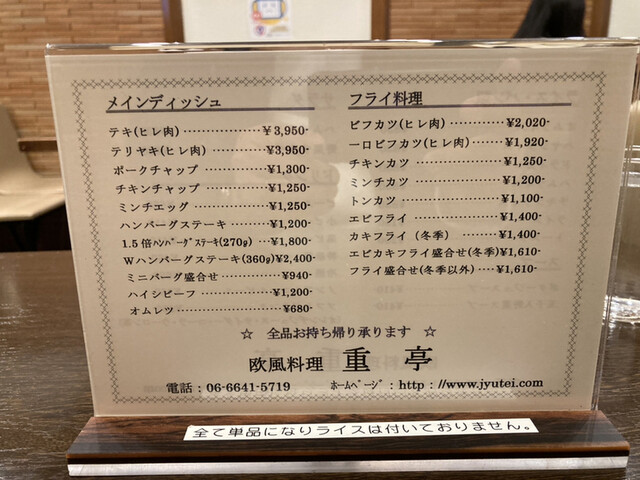 メインディッシュ
テキ(ヒレ肉)………………¥3,950-
テリヤキ(ヒレ肉)…………¥3,950-
ポークチャップ……………¥1,300-
チキンチャップ……………¥1,250-
ミンチエッグ………………¥1,250-
ハンバーグステーキ………¥1,200-
1.5倍ﾊﾝﾊﾞｰｸﾞｽﾃｰｷ(270g)…¥1,800-
Wハンバーグステーキ(360g)¥2,400-
ミニバーグ盛合せ…………¥940-
ハイシビーフ………………¥1,200-
オムレツ……………………¥680-
フライ料理
ビフカツ(ヒレ肉)…………¥2,020-
一口ビフカツ(ヒレ肉)……¥1,920-
チキンカツ…………………¥1,250-
ミンチカツ…………………¥1,200-
トンカツ……………………¥1,100-
エビフライ…………………¥1,400-
カキフライ(冬季)…………¥1,400-
エビカキフライ盛合せ(冬季)¥1,610-
フライ盛合せ(冬季以外)….¥1,610-
☆ 全品お持ち帰り承ります ☆
欧風料理 重亭
電話：06-6641-5719 ﾎｰﾑﾍﾟｰｼﾞ：http：//www.jyutei.com
全て単品になりライスは付いておりません。